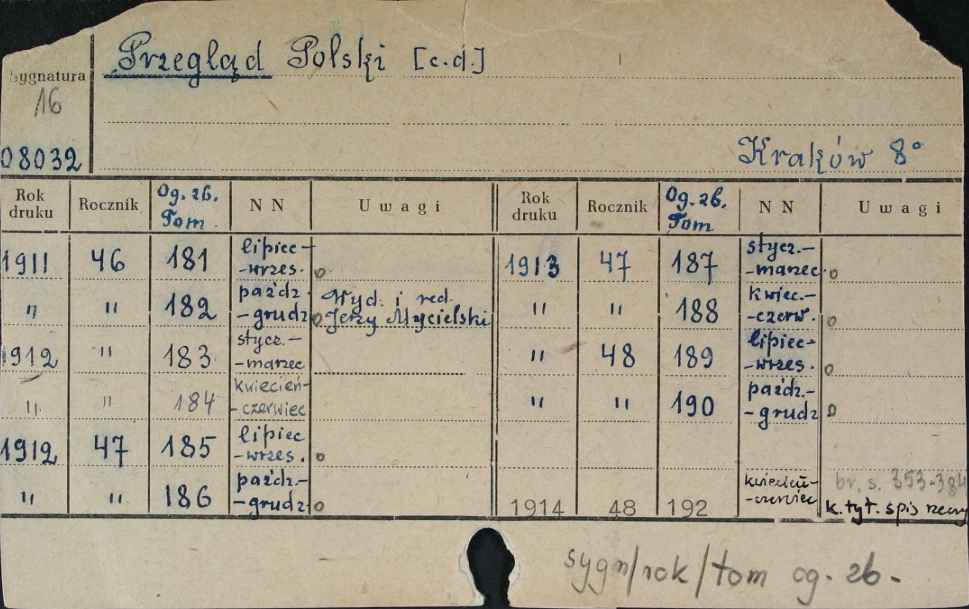 Przegląd Polski [c.d.]
Sygnatura
16
08032
Kraków 8°
Rok druku Rocznik Og. zb. Tom N N Uwagi
1911 46 181 lipiec - wrzes. o
" " 182 paźdz. - grudz o Wyd. i red. Jerzy Mycielski
1912 " 183 stycz. - marzec
" " 184 kwiecień - czerwiec
1912 47 185 lipiec - wrzes. o
" " 186 paźdz. - grudz o
Rok druku Rocznik Og. zb. Tom N N Uwagi
1913 47 187 stycz. - marzec o
" " 188 kwiec. - czerw. o
" 48 189 lipiec - wrzes. o
" " 190 paźdz. - grudz o
1914 48 192 kwiecień - czerwiec br. s. 353-384
k. tyt. spis rzeczy
sygn/rok/tom og. zb.